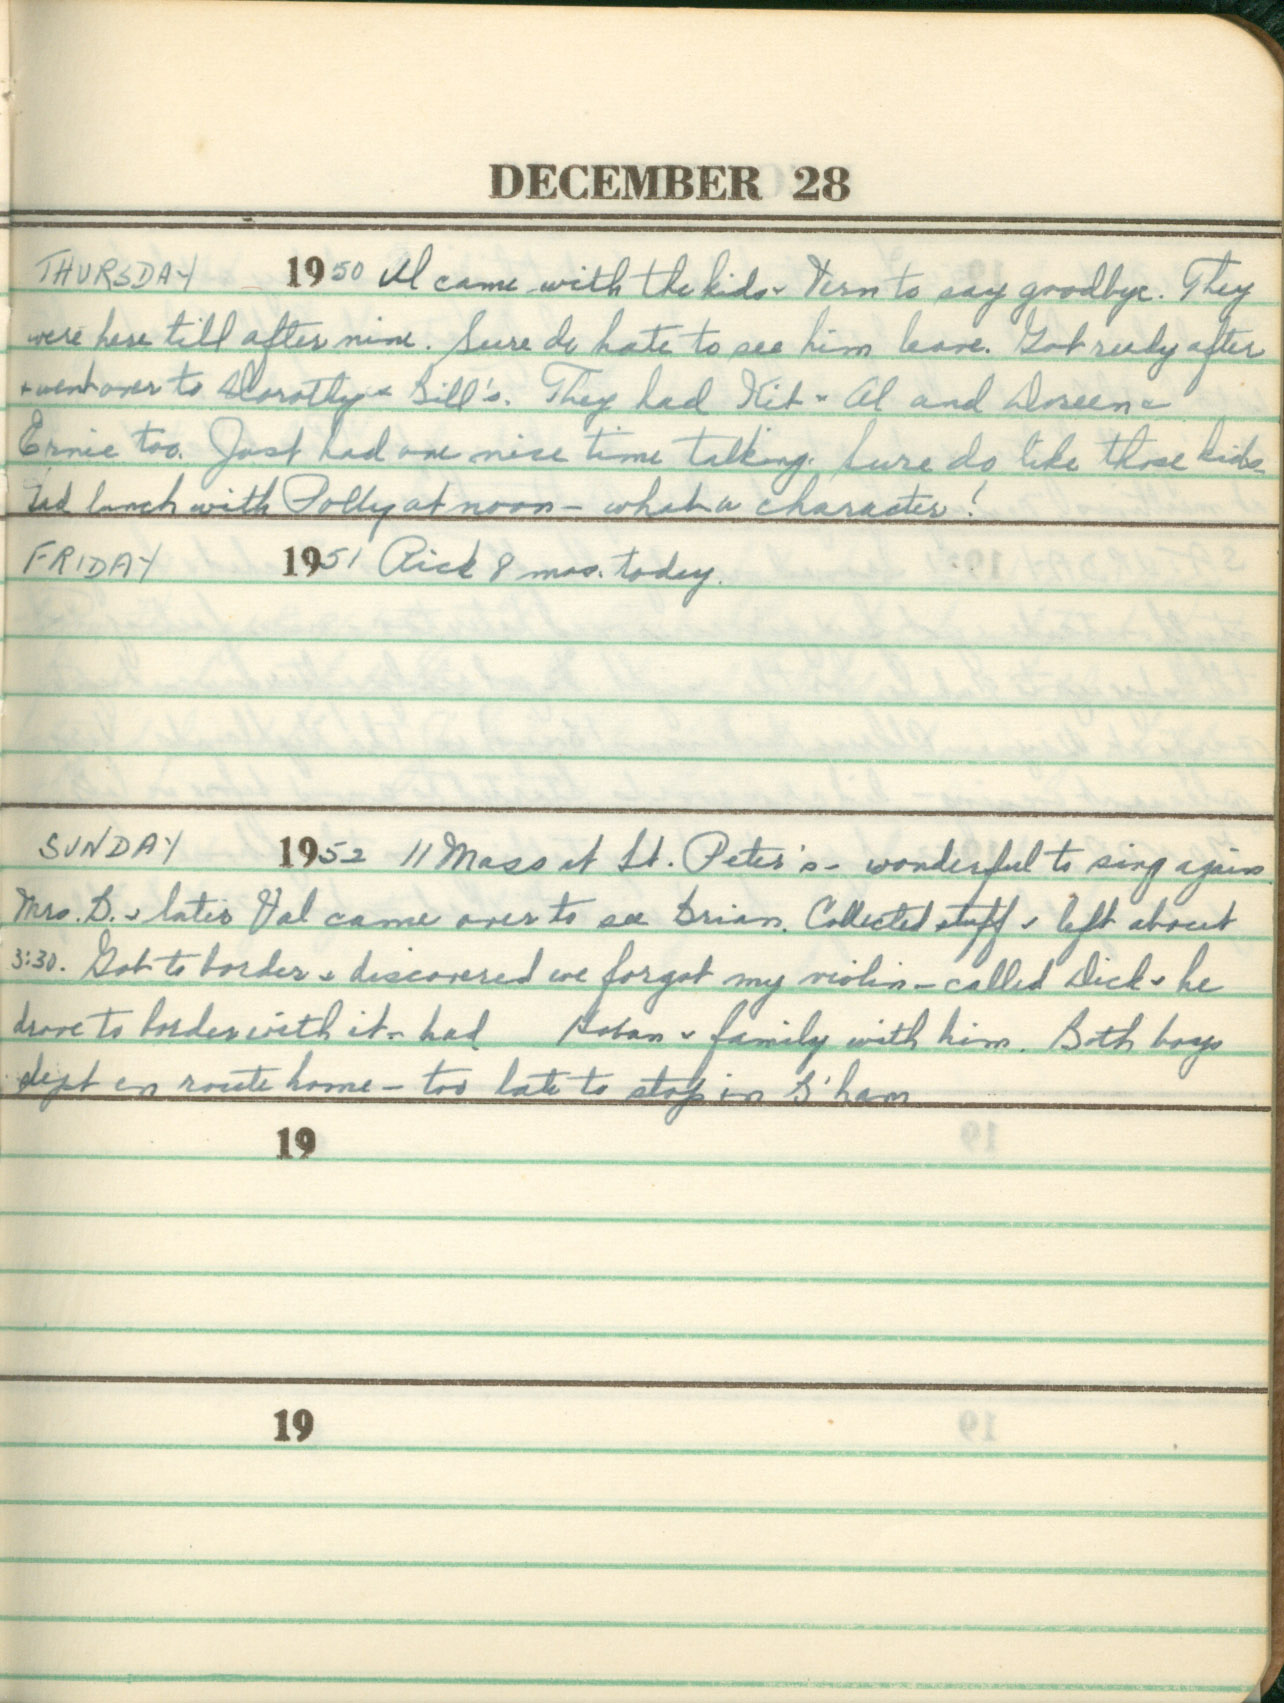 DECEMBER 28
THURSDAY 1950 Al came with the kids & Vern to say goodbye. They
were here till after nine. Sure do hate to see him leave. Got ready after
& went over to Dorothy & Bill's. They had Kit & Al and Doreen &
Ernie too. Just had one nice time talking. Sure do like those kids
Had lunch with Polly at noon - what a character!
FRIDAY 1951 Rick 8 mos. today.
SUNDAY 1952 11 Mass at St. Peter's - wonderful to sing again
Mrs. B. & later Val came over to see Brian. Collected stuff & left about
3:30. Got to border & discovered we forgot my violin - called Dick & he
drove to border with it - had & family with him. Both boys
slept en route home - too late to stop in B'ham
19
19